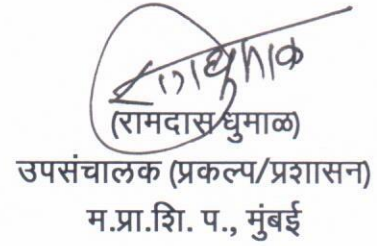 (रामदास धुमाळ)
उपसंचालक (प्रकल्प/प्रशासन)
म.प्रा.शि. प., मुंबई